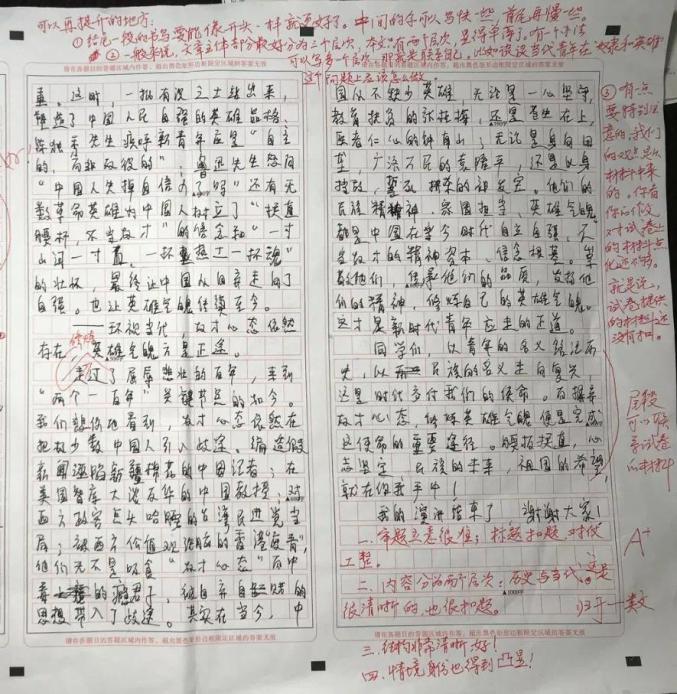 可以再提升的地方:
①结尾一段的书写要能像开头一样就更好了。中间的字可以写快一些,首尾再慢一些。
②一般来说,文章主体部分最好分为三个层次,本文有两个层次,显得单薄了。有一个办法
可以写第三个层次,那就是联系自己。比如谈谈当代青年在"奴隶和英雄"
这个问题上应该怎么做。
请在各题目的答题区域内作答,超出黑色矩形边框限定区域的答案无效
请在各题目的答题区域内作答,超出黑色矩形边框限定区域的答案无效
这时,一批有识之士站出来,
塑造了中国人民自强的英雄品格。
陈独秀先生疾呼新青年应是"自主
的,而非奴役的",鲁迅先生怒问
"中国人失掉自信力了吗"还有无
数革命英雄为中国人树立了"挺直
腰杆,不当奴才"的信念和"一寸
山河一寸血,一抔热土一抔魂"
的壮怀,最终让中国从自弃走向了
自强。也让英雄气魄传续至今。
——环视当代,奴才心态依然
存在,修炼英雄气魄方是正途。
走过了屈辱悲壮的百年,来到
"两个一百年"关键节点的如今。
我们悲伤地看到,奴才心态依然在
把极少数中国人引入歧途。编造假
新闻诬陷新疆棉花的中国记者;在
美国智库大谈反华的中国教授;对
西方政客点头哈腰的台湾民进党当
局;被西方价值观洗脑的香港"废青",
他们无不是吸食"奴才心态"而中
毒上瘾的瘾君子,被自弃自轻自贱的
思想带入了歧途。其实在当今,中
国从不缺少英雄,无论是一心坚守
教育扶贫的张桂梅,还是至坐在上,
医者仁心的钟南山;无论是身向田
垄,广济万民的袁隆平,还是
他们的
民族精神,家国担当,英雄气魄
都是中国在当今时代自立自强,不
当奴才的精神资本、信念根基。掌
他们,传承他们的品质,发扬他
们的精神,修炼自己的英雄气魄。
这才是新时代青年应走的正道。
同学们,以青年的名义
先,以民族的名义走向复兴,
这是时代交付我们的使命。而摒弃
奴才心态,修炼英雄气魄便是完成
这使命的重要途径。腰杆挺直,心
志坚定,民族的未来,祖国的希望,
就在你我手中!
我的演讲结束了,谢谢大家!
一、审题立意很准;标题扣题、对仗
工整。
二、内容分为两个层次:历史与当代,这是
很清晰的,也很扣题。
请在各题目的答题区域内作答,超出黑色矩形边框限定区域的答案无效
请在各题目的答题区域内作答,超出黑色矩形边框限定区域的答案无效
三、结构非常清晰,好!
四、情境身份也得到凸显!
③有点
要特别注
意的,我们
的观点是从
材料中来
的。你看
你的作文
对试卷上
的材料点
化还不够。
就是说,
试卷提供
的材料还
没有扣。
尾段
可以联
系试卷
的材料
A+
归于一类文